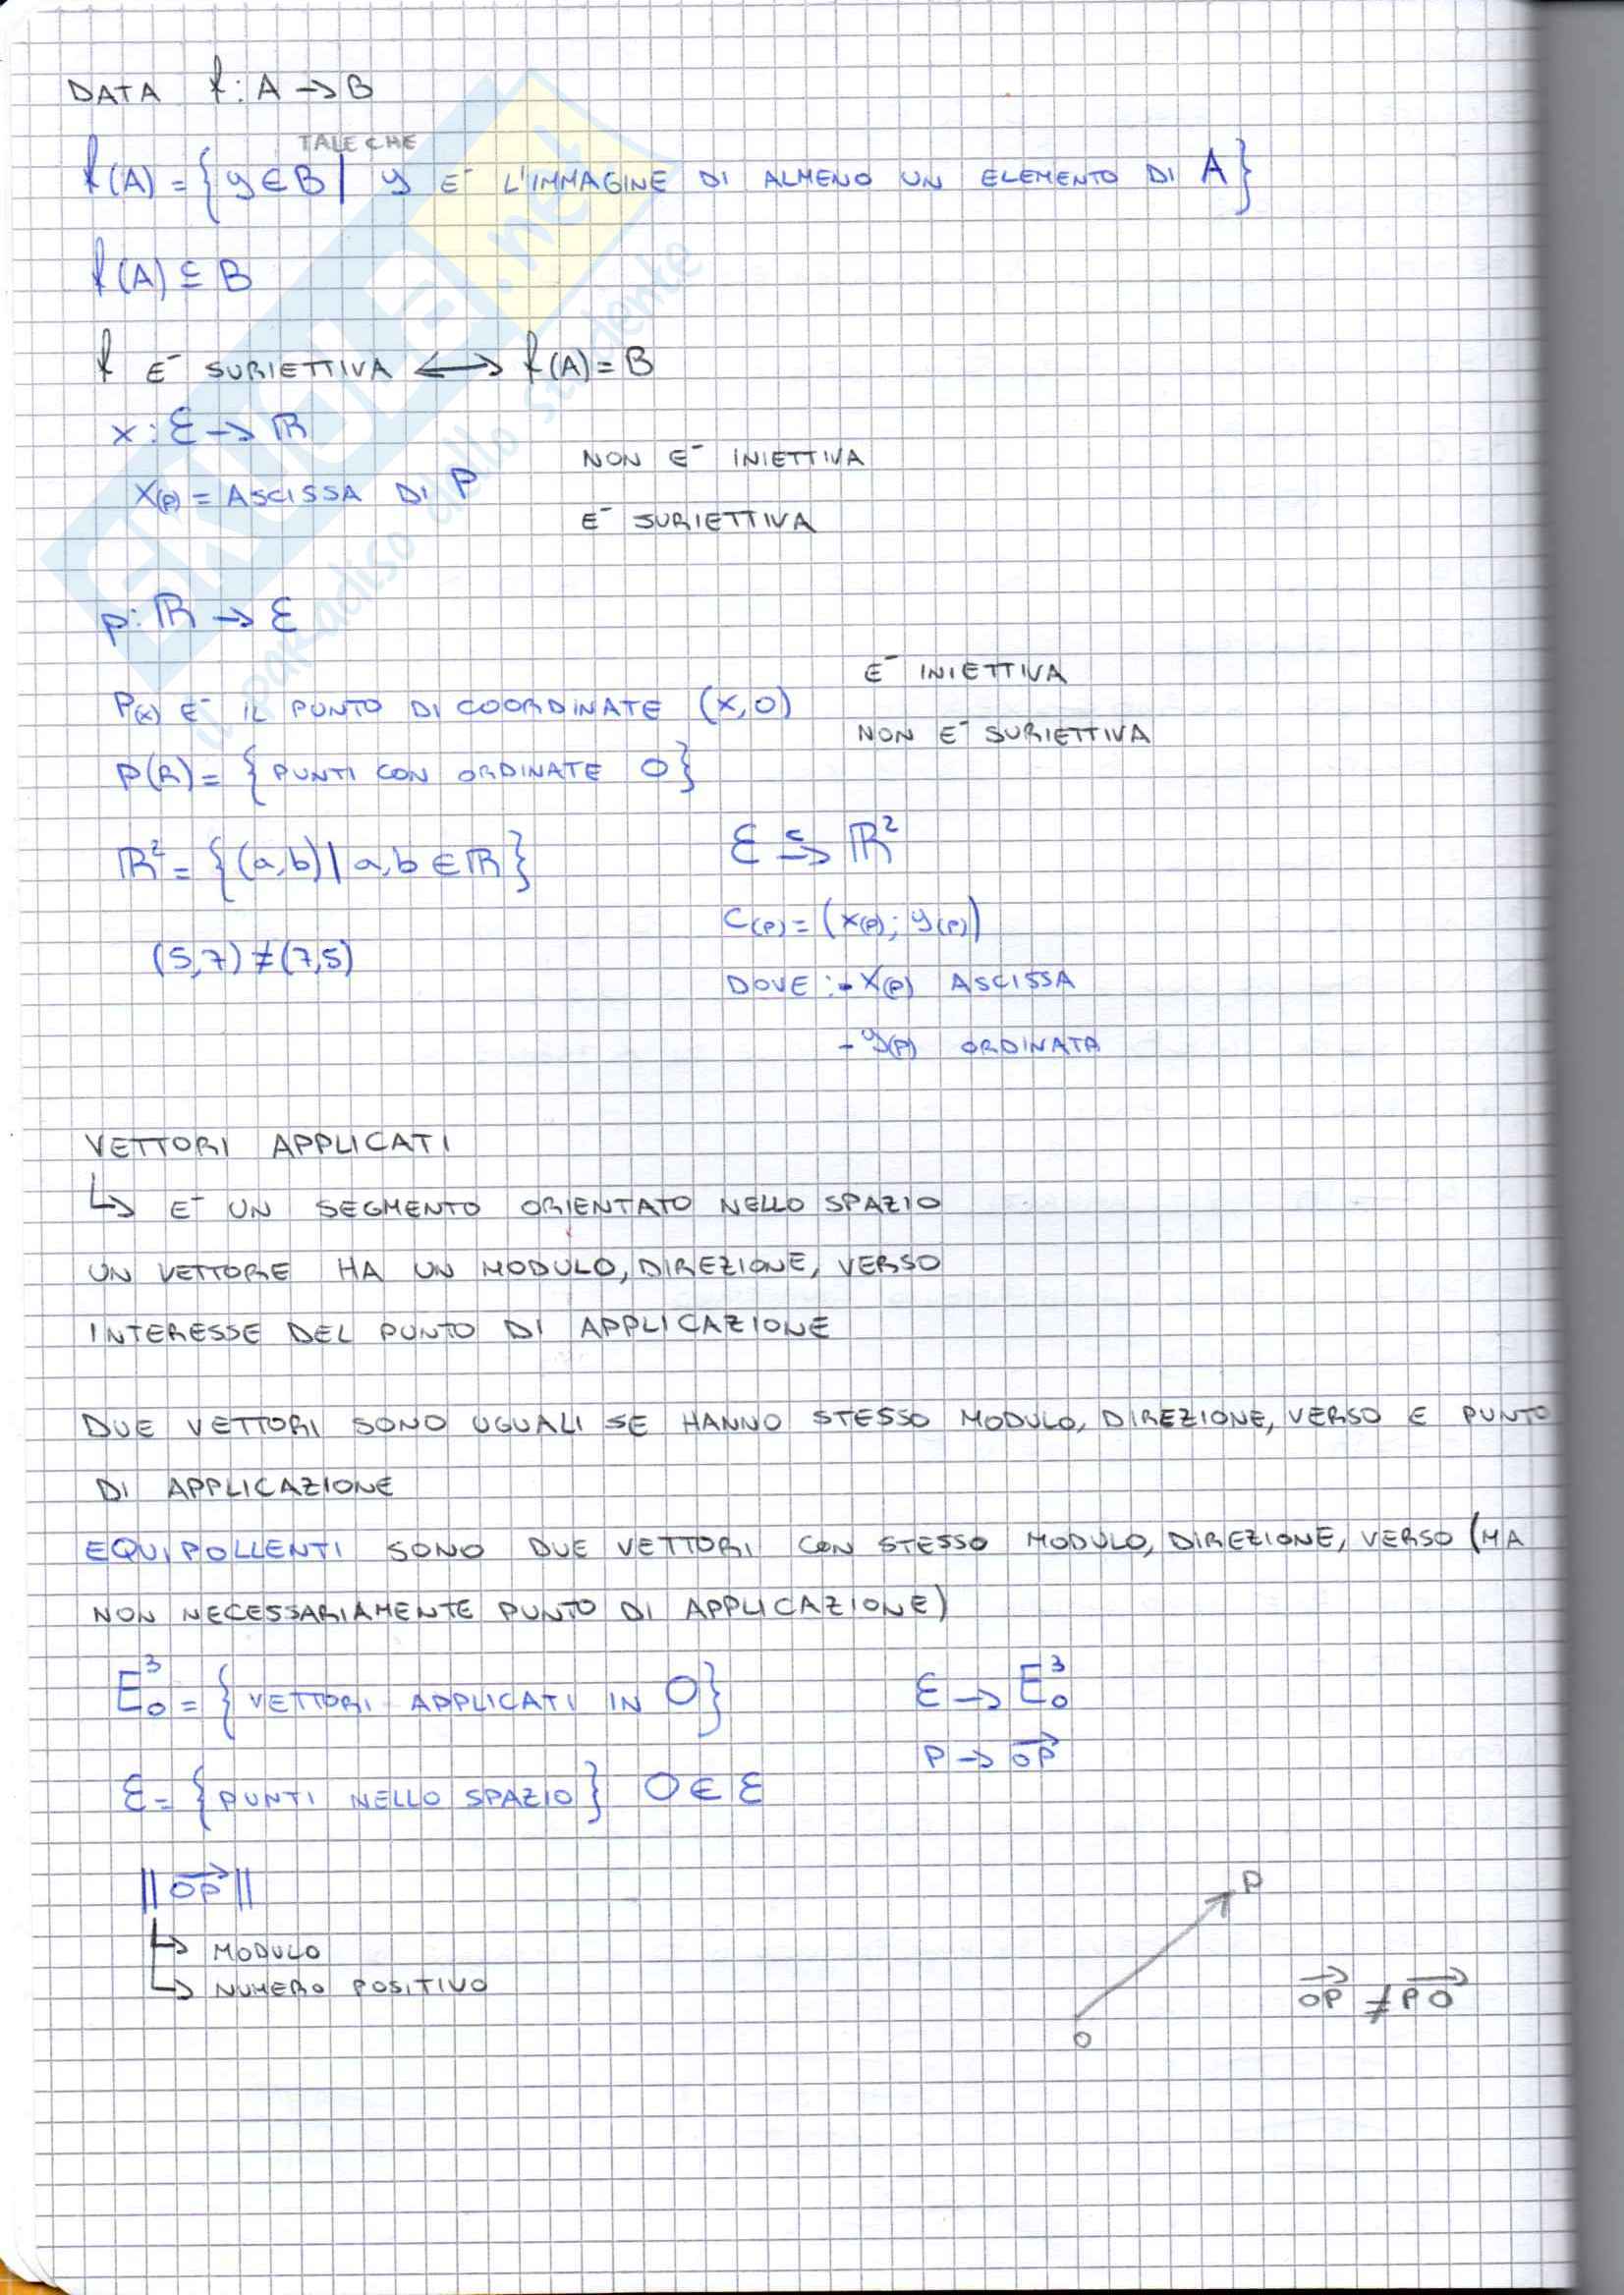 DATA f: A → B
TALE CHE
f(A) = {y ∈ B | y E' L'IMMAGINE DI ALMENO UN ELEMENTO DI A}
f(A) ⊆ B
f E' SURIETTIVA ↔ f(A) = B
x: ℰ → ℝ
NON E' INIETTIVA
x(P) = ASCISSA DI P
E' SURIETTIVA
p: ℝ → ℰ
E' INIETTIVA
P(x) E' IL PUNTO DI COORDINATE (x,0)
NON E' SURIETTIVA
P(R) = {PUNTI CON ORDINATE 0}
ℝ² = {(a,b) | a,b ∈ ℝ}
ℰ →ᶜ ℝ²
C(P) = (x(P); y(P))
(5,7) ≠ (7,5)
DOVE: - x(P) ASCISSA
- y(P) ORDINATA
VETTORI APPLICATI
↳ E' UN SEGMENTO ORIENTATO NELLO SPAZIO
UN VETTORE HA UN MODULO, DIREZIONE, VERSO
INTERESSE DEL PUNTO DI APPLICAZIONE
DUE VETTORI SONO UGUALI SE HANNO STESSO MODULO, DIREZIONE, VERSO E PUNTO
DI APPLICAZIONE
EQUIPOLLENTI SONO DUE VETTORI CON STESSO MODULO, DIREZIONE, VERSO (MA
NON NECESSARIAMENTE PUNTO DI APPLICAZIONE)
E³₀ = {VETTORI APPLICATI IN O}
ℰ → E³₀
P → OP⃗
ℰ = {PUNTI NELLO SPAZIO} O ∈ ℰ
||OP⃗||
P
↳ MODULO
↳ NUMERO POSITIVO
OP⃗ ≠ PO⃗
O
SKUOLA.net
il paradiso dello studente